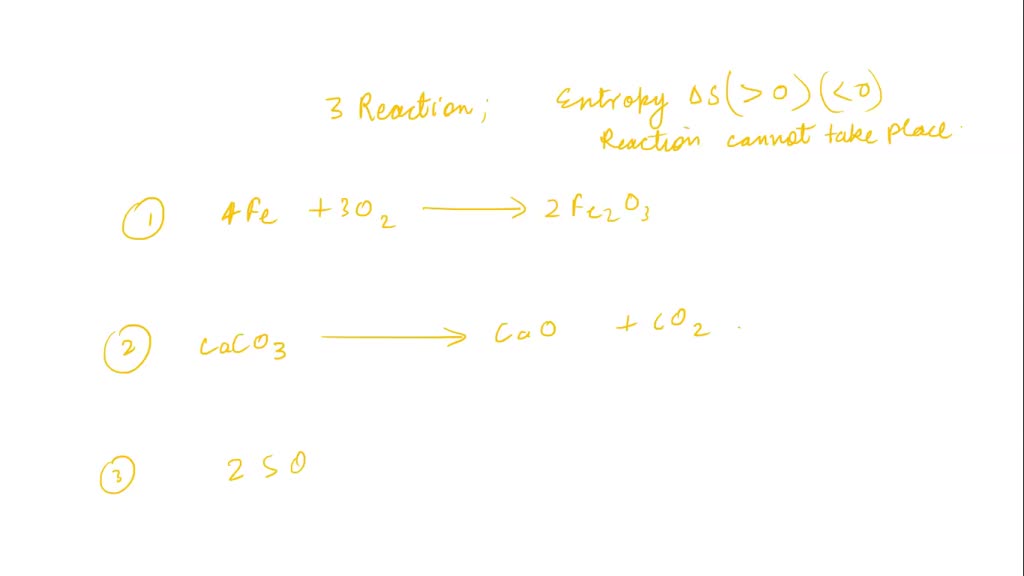 3 Reaction; Entropy ΔS(>0)(<0)
Reaction cannot take place.
① 4Fe + 3O₂ ⟶ 2Fe₂O₃
② CaCO₃ ⟶ CaO + CO₂ .
③ 2SO